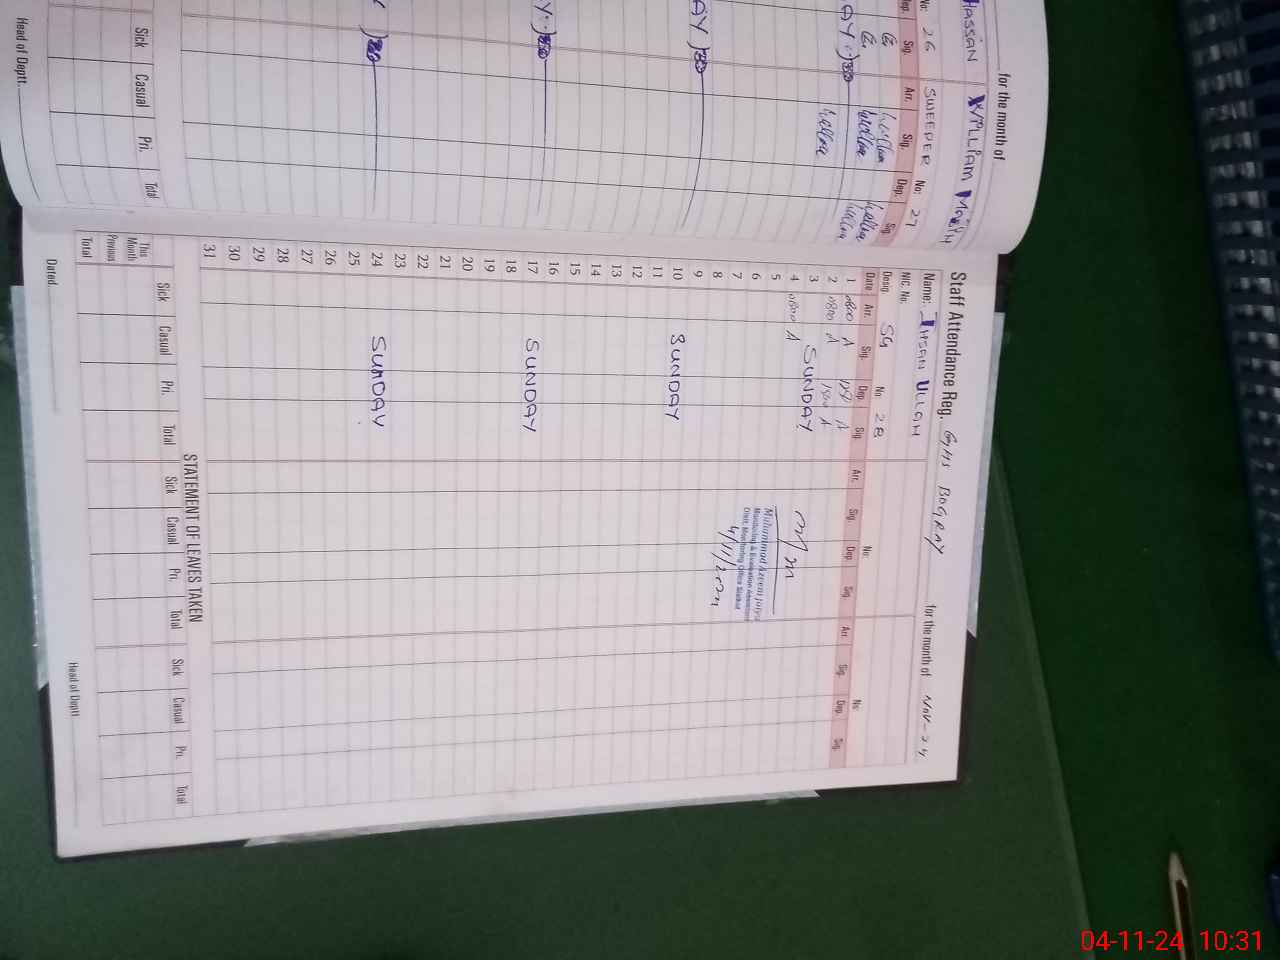 HASSAN
for the month of
WILLIAM MASIH
No: 26
SWEEPER No: 27
Dep. Sig. Arr. Sig. Dep. Sig.
Sick Casual Pri. Total
Head of Deptt.
Staff Attendance Reg. GHS BOGRAY for the month of Nov-24
Name: IHSAN ULLAH
N.I.C. No.
Desig. SG No: 28 No: No:
Date Arr. Sig. Dep. Sig. Arr. Sig. Dep. Sig. Arr. Sig. Dep. Sig.
1 0800 A A
2 0800 A 1500 A
3 SUNDAY
4 0800 A
5
6
7
8
9
10 SUNDAY
11
12
13
14
15
16
17 SUNDAY
18
19
20
21
22
23
24 SUNDAY
25
26
27
28
29
30
31
Muhammad Azeem
Monitoring & Evaluation Assistant
Distt. Monitoring Office Sialkot
4/11/2024
STATEMENT OF LEAVES TAKEN
Sick Casual Pri. Total Sick Casual Pri. Total Sick Casual Pri. Total
This Month
Previous
Total
Dated
Head of Deptt
04-11-24 10:31